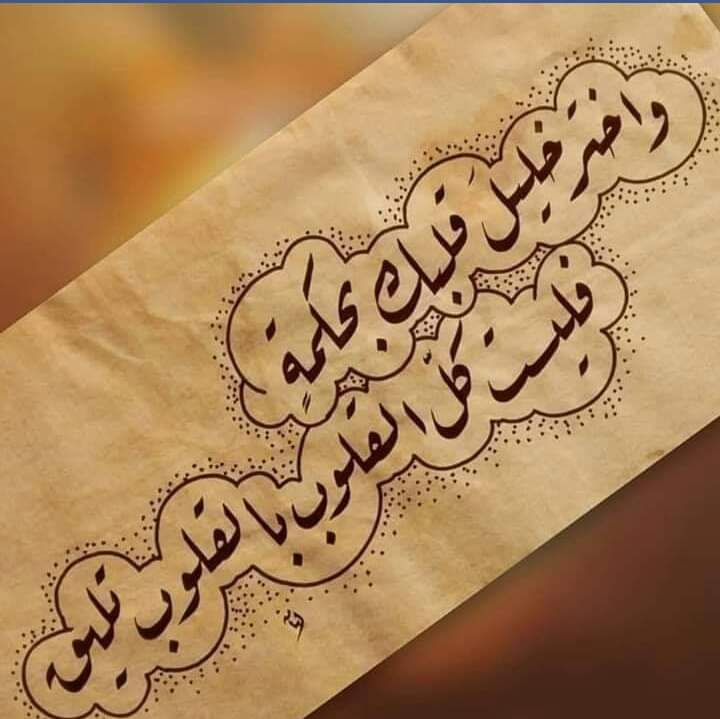 واختر خليلَ قلبك بحكمةٍ
فليست كلّ القلوب بالقلوب تليق